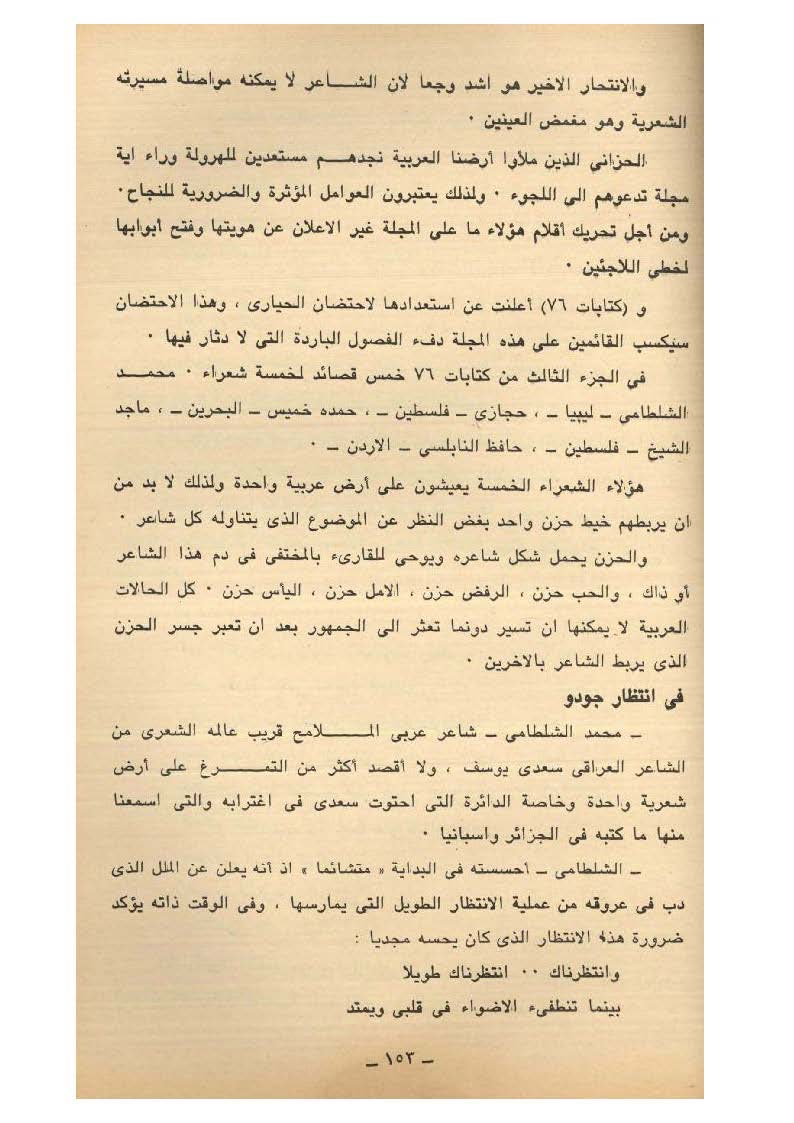 والانتحار الاخير هو اشد وجعا لان الشـــاعر لا يمكنه مواصلة مسيرته
الشعرية وهو مغمض العينين ٠
الحزانى الذين ملأوا أرضنا العربية نجدهــم مستعدين للهرولة وراء اية
مجلة تدعوهم الى اللجوء ٠ ولذلك يعتبرون العوامل المؤثرة والضرورية للنجاح٠
ومن أجل تحريك أقلام هؤلاء ما على المجلة غير الاعلان عن هويتها وفتح أبوابها
لخطي اللاجئين ٠
و (كتابات ٧٦) أعلنت عن استعدادها لاحتضان الحيارى ، وهذا الاحتضان
سيكسب القائمين على هذه المجلة دفء الفصول الباردة التى لا دثار فيها ٠
في الجزء الثالث من كتابات ٧٦ خمس قصائد لخمسة شعراء ٠ محمــد
الشلطامي – ليبيا – ، حجازي – فلسطين – ، حمده خميس – البحرين – ، ماجد
الشيخ – فلسطين – ، حافظ النابلسي – الاردن – ٠
هؤلاء الشعراء الخمسة يعيشون على أرض عربية واحدة ولذلك لا بد من
ان يربطهم خيط حزن واحد بغض النظر عن الموضوع الذى يتناوله كل شاعر ٠
والحزن يحمل شكل شاعره ويوحي للقارىء بالمختفى فى دم هذا الشاعر
أو ذاك ، والحب حزن ، الرفض حزن ، الامل حزن ، اليأس حزن ٠ كل الحالات
العربية لا يمكنها ان تسير دونما تعثر الى الجمهور بعد ان تعبر جسر الحزن
الذى يربط الشاعر بالاخرين ٠
فى انتظار جودو
– محمد الشلطامى – شاعر عربى المـــلامح قريب عالمه الشعرى من
الشاعر العراقى سعدى يوسف ، ولا أقصد أكثر من التمـــرغ على أرض
شعرية واحدة وخاصة الدائرة التى احتوت سعدى فى اغترابه والتى اسمعنا
منها ما كتبه فى الجزائر واسبانيا ٠
– الشلطامى – أحسسته فى البداية « متشائما » اذ أنه يعلن عن الملل الذى
دب فى عروقه من عملية الانتظار الطويل التى يمارسها ، وفى الوقت ذاته يؤكد
ضرورة هذا الانتظار الذى كان يحسه مجديا :
وانتظرناك ٠٠ انتظرناك طويلا
بينما تنطفىء الاضواء فى قلبى ويمتد
– ١٥٣ –